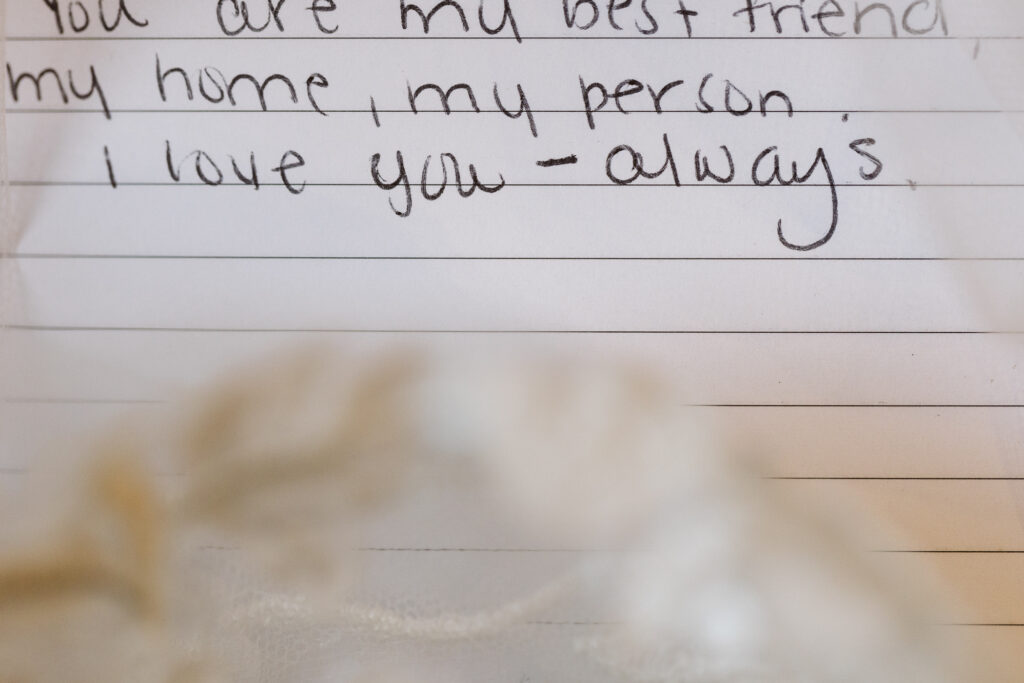 You are my best friend,
my home, my person.
i love you - always.